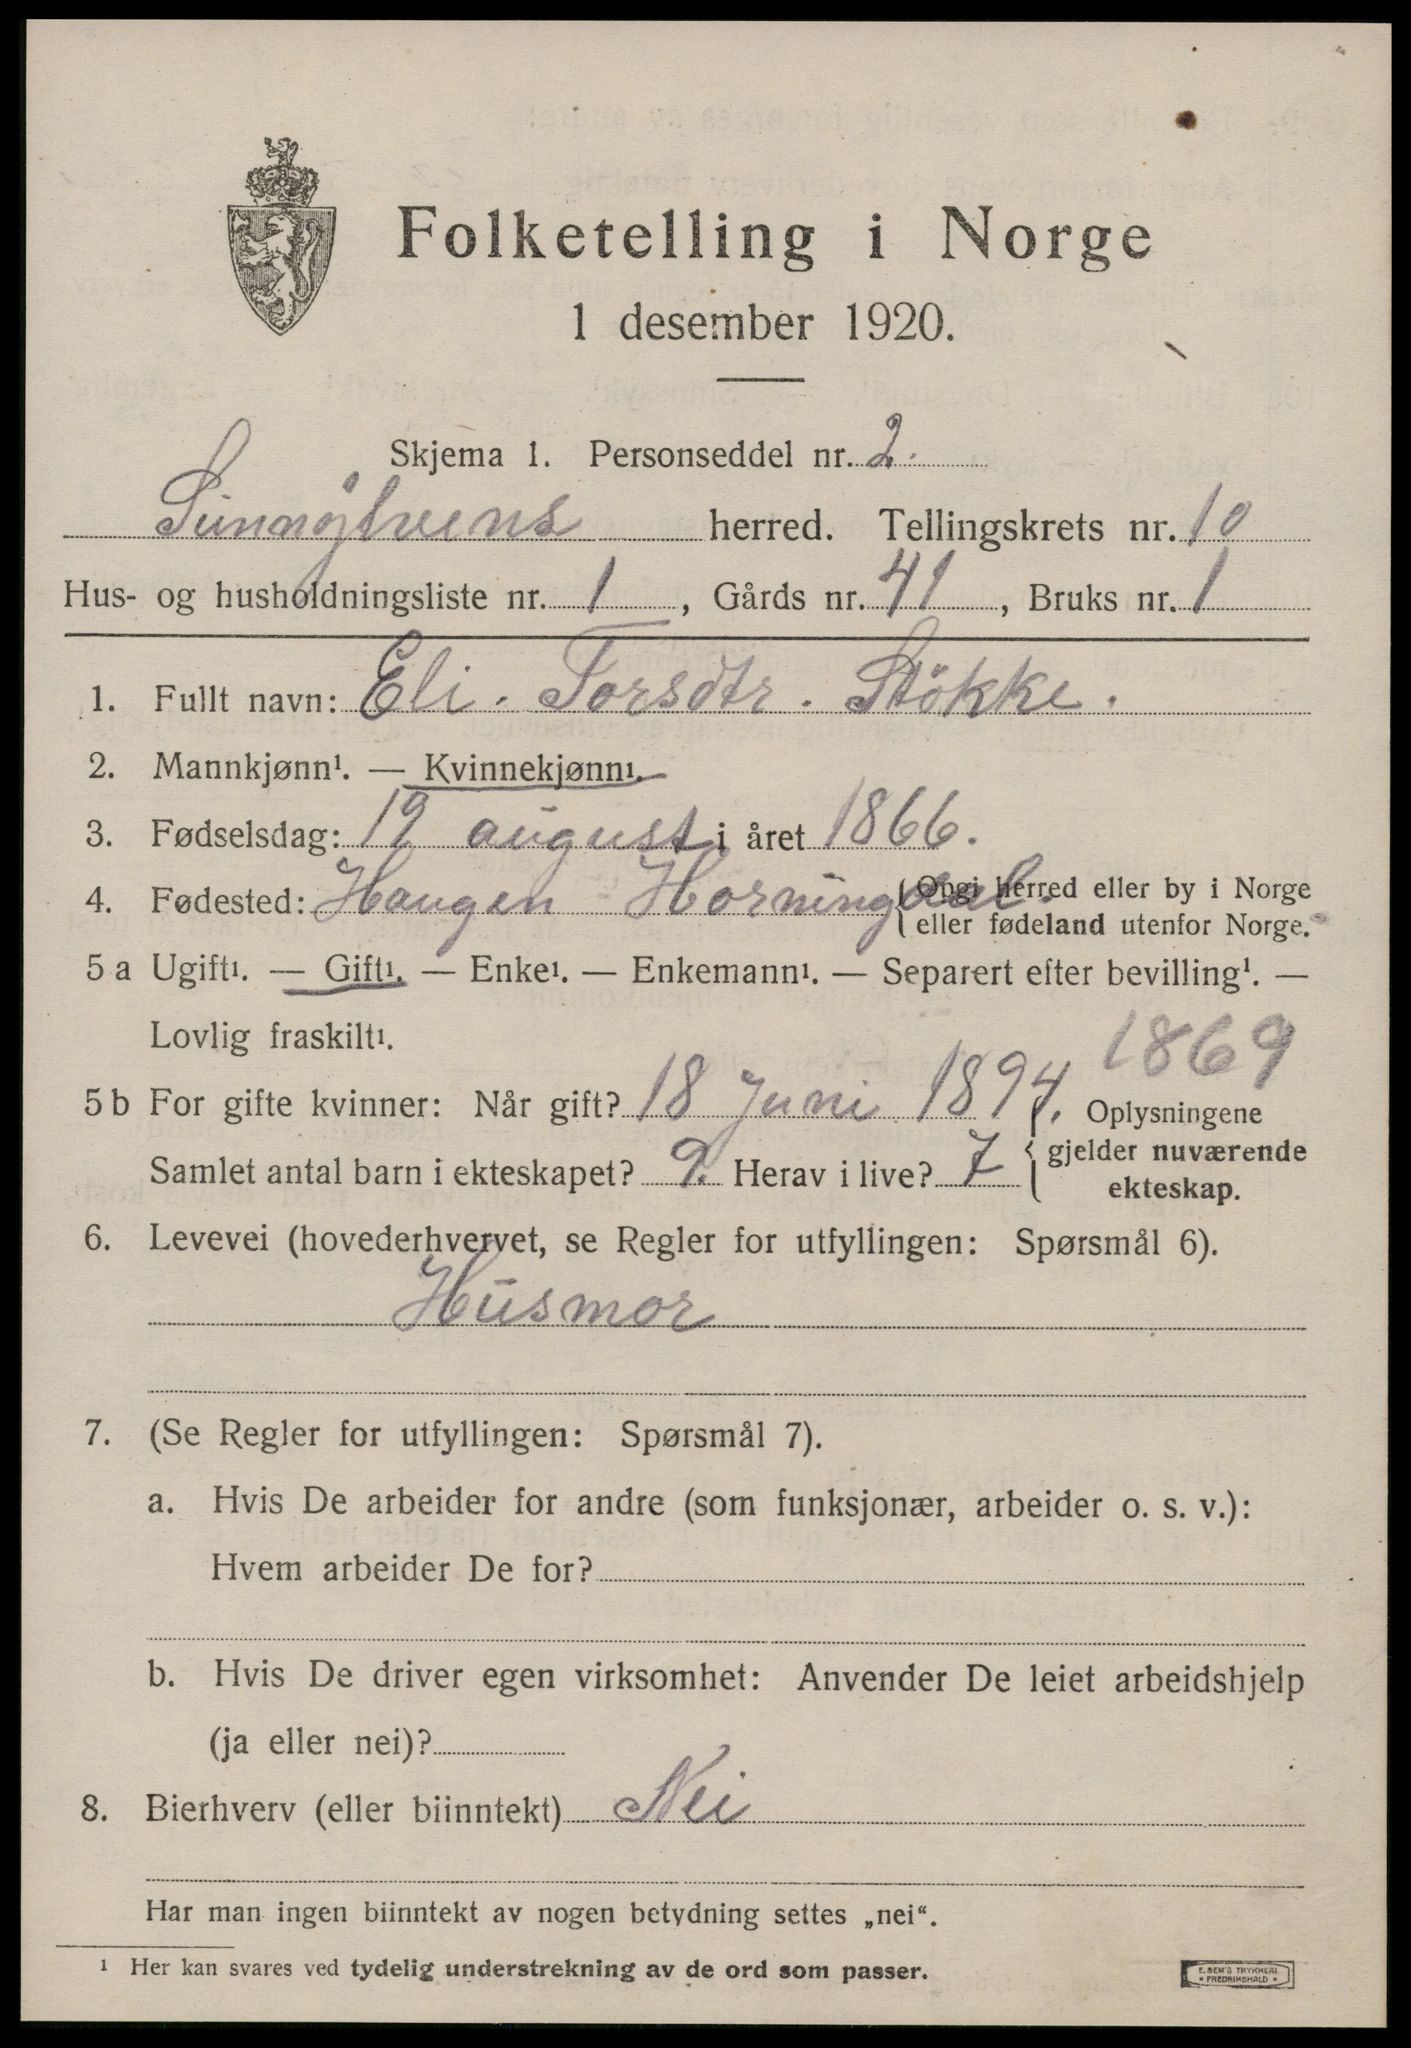 Folketelling i Norge
1 desember 1920.
Skjema 1. Personseddel nr. 2.
Sunnÿlvens herred. Tellingskrets nr. 10
Hus- og husholdningsliste nr. 1, Gårds nr. 41, Bruks nr. 1
1. Fullt navn: Eli. Torsdtr. Stökke.
2. Mannkjønn¹. — Kvinnekjønn¹.
3. Fødselsdag: 19 august i året 1866.
4. Fødested: Haugen Horningdal. {Opgi herred eller by i Norge
eller fødeland utenfor Norge.
5 a Ugift¹. — Gift¹. — Enke¹. — Enkemann¹. — Separert efter bevilling¹. —
Lovlig fraskilt¹.
1869
5 b For gifte kvinner: Når gift? 18 Juni 1894. { Oplysningene
Samlet antal barn i ekteskapet? 9. Herav i live? 7 gjelder nuværende
ekteskap.
6. Levevei (hovederhvervet, se Regler for utfyllingen: Spørsmål 6).
Husmor
7. (Se Regler for utfyllingen: Spørsmål 7).
a. Hvis De arbeider for andre (som funksjonær, arbeider o. s. v.):
Hvem arbeider De for?
b. Hvis De driver egen virksomhet: Anvender De leiet arbeidshjelp
(ja eller nei)?
8. Bierhverv (eller biinntekt) Nei
Har man ingen biinntekt av nogen betydning settes „nei“.
¹ Her kan svares ved tydelig understrekning av de ord som passer.
E. SEM'S TRYKKERI
* FREDRIKSHALD *